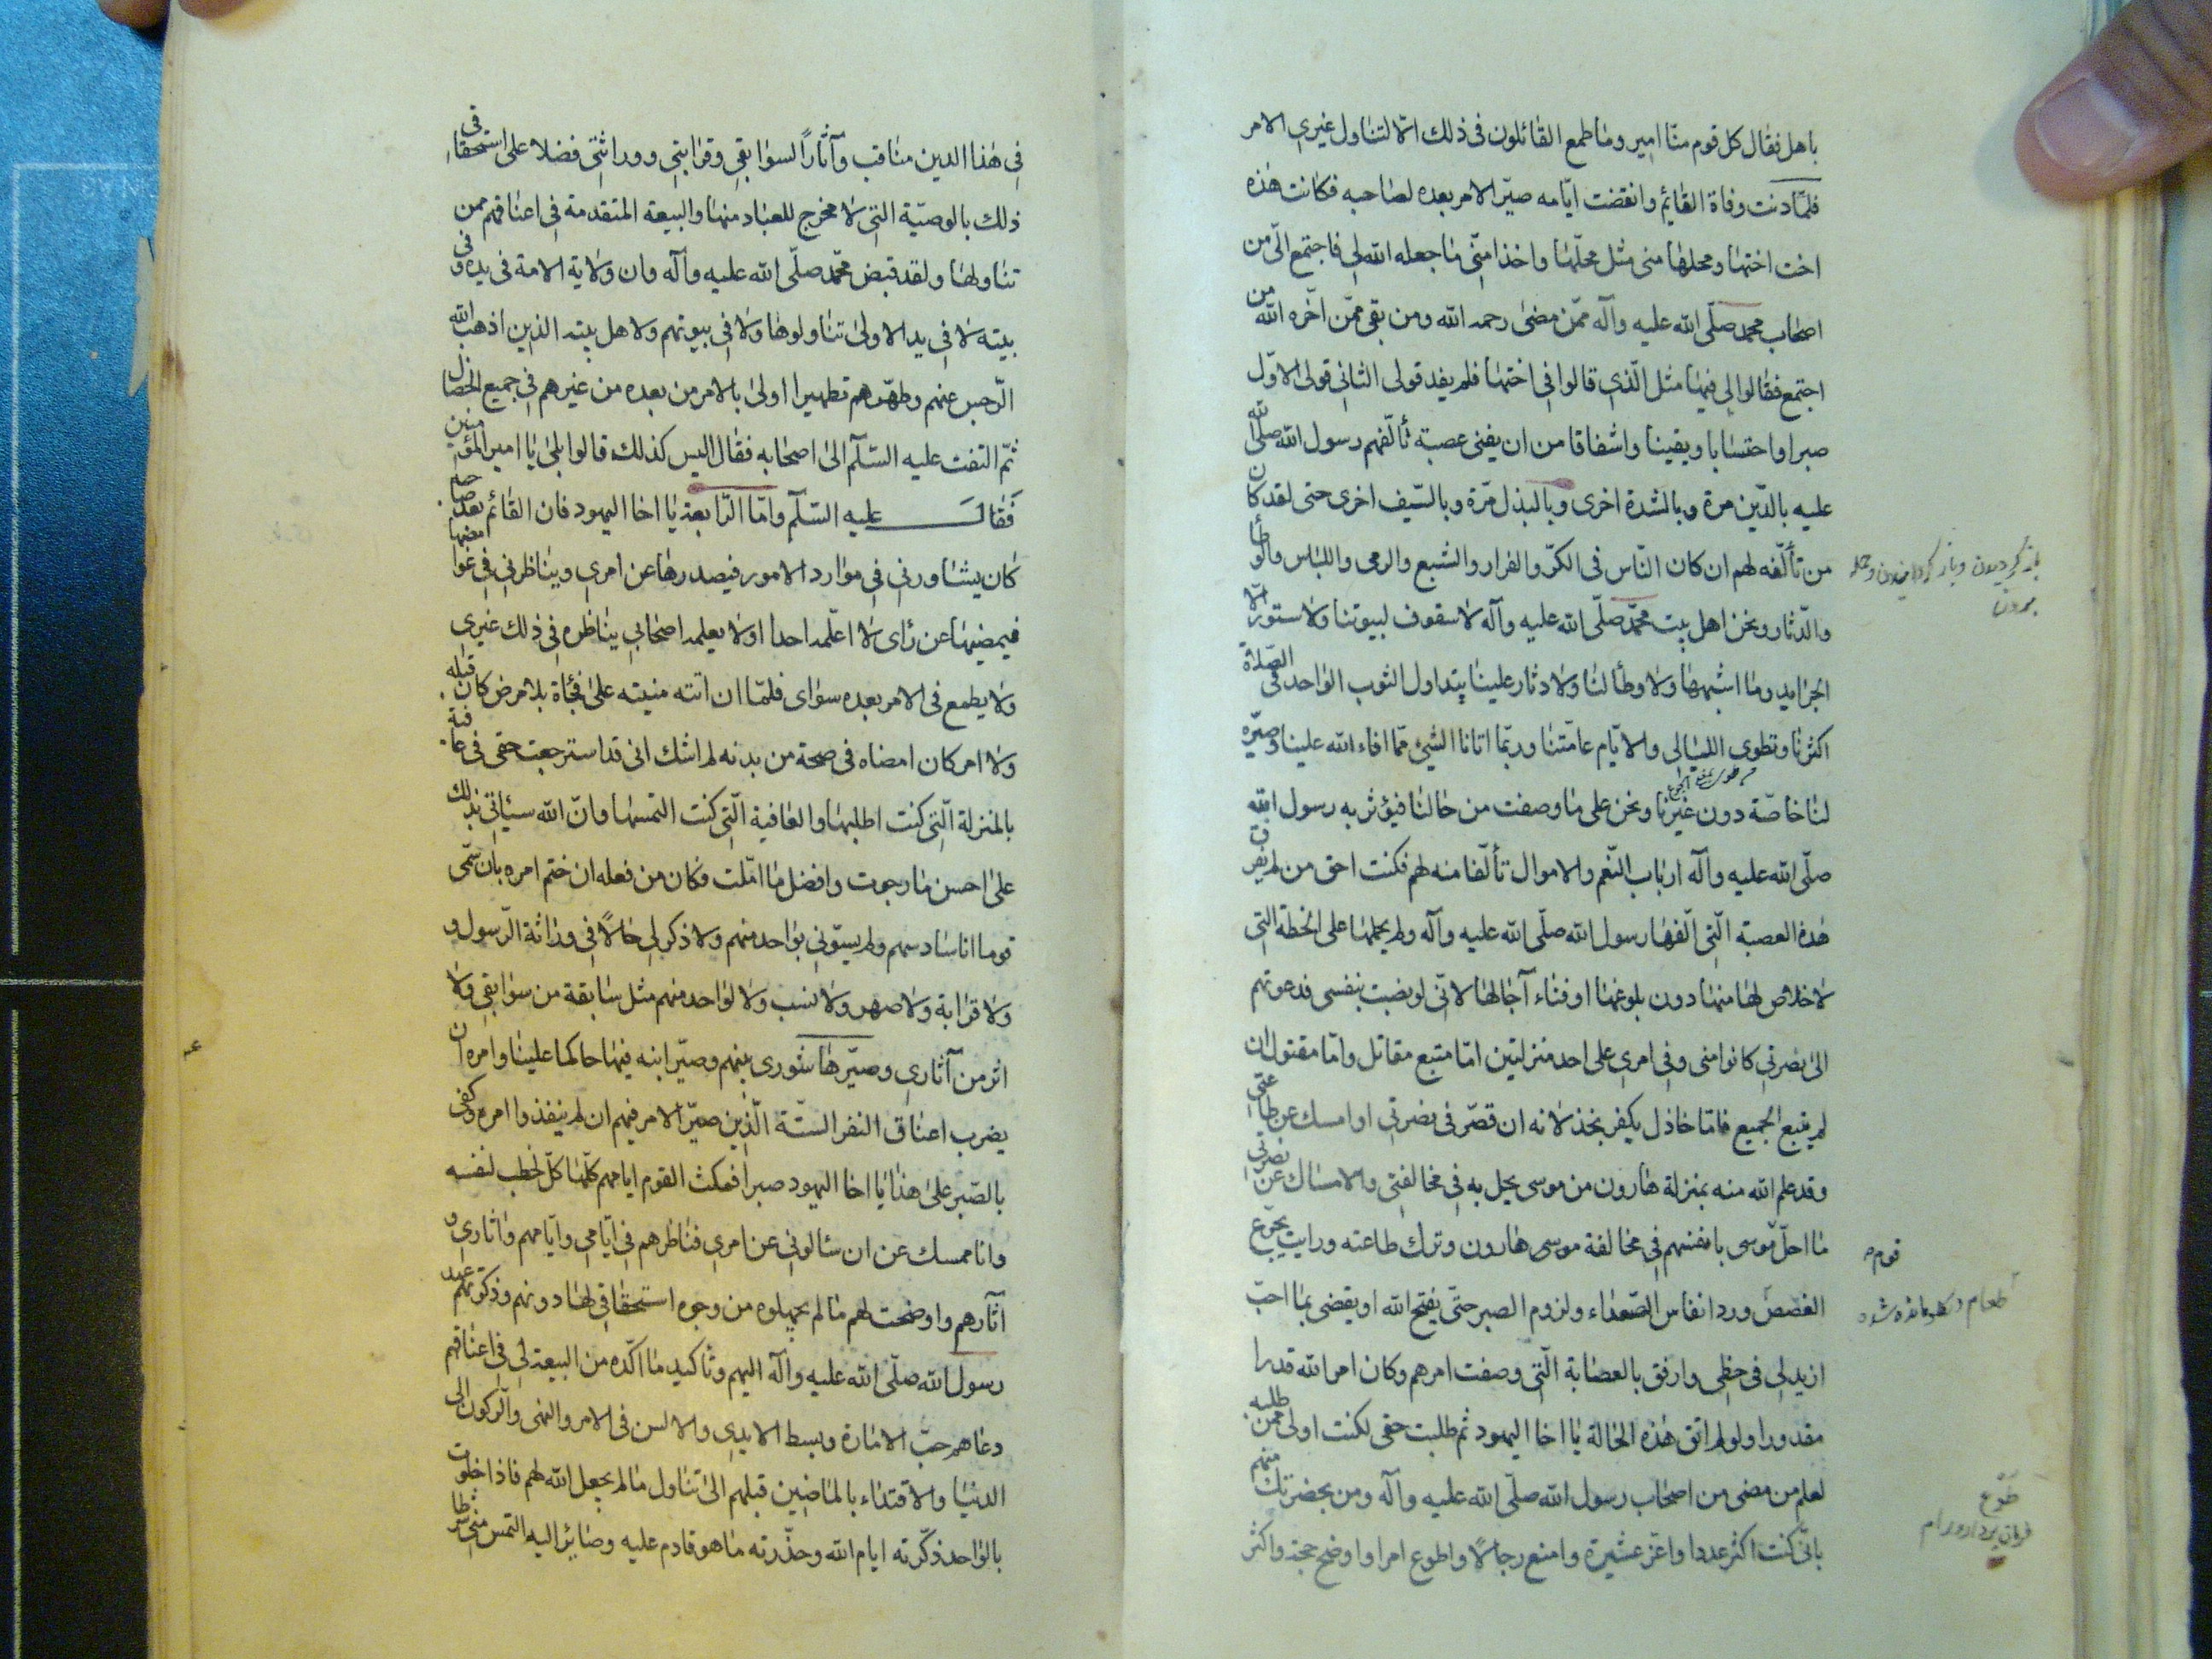 باهل فقال كل قوم منّا امير وما طمع القائلون فى ذلك الّا لتناول غيرى الامر
فلمّا دنت وفاة القائم وانقضت ايّامه صيّر الامر بعده لصاحبه فكانت هذه
اخت اختها ومحلها منى مثل محلّها واخذا منّى ما جعله الله لى فاجتمع الّى من
اصحاب محمد صلّى الله عليه وآله ممّن مضى رحمه الله ومن بقى ممّن اخّره الله من
اجتمع فقالوا لى فيها مثل الّذى قالوا فى اختها فلم يعد قولى الثانى قولى الاوّل
صبرا واحتسابا ويقينا واشفاقا من ان يفنى عصبة تألّفهم رسول الله صلّى الله
عليه بالدّين مرة وبالشدة اخرى وبالبذل مرّة وبالسّيف اخرى حتى لقد كان
من تألّفه لهم ان كان النّاس فى الكرّ والفرار والشبع والرى واللباس والوطأ
والدّثار ونحن اهل بيت محمّد صلّى الله عليه وآله لا سقوف لبيوتنا ولا ستور الّا
الجرايد وما اشبهها ولا وطأ لنا ولا دثار علينا يتداول الثوب الواحد فى الصّلاة
اكثرنا وتطوى الليالى والايّام عامّتنا وربّما اتانا الشىء ممّا افاء الله علينا وصيّره
لنا خاصّة دون غيرنا ونحن على ما وصفت من حالنا فيؤثر به رسول الله
صلّى الله عليه وآله ارباب النّعم والاموال تألّفا منه لهم فكنت احق من لم يفرق
هذه العصبة الّتى الّفها رسول الله صلّى الله عليه وآله ولم يحملها على الخطة التى
لا خلاص لها منها دون بلوغها او فناء آجالها لانّى لو نصبت بنفسى فدعوتهم
الى نصرتى كانوا منى وفى امرى على احد منزلتين امّا متبع مقاتل وامّا مقتول ان
لم يتبع الجميع فامّا خاذل يكفر بخذلانه ان قصّر فى نصرتى او امسك عن طاعتى
وقد علم الله منه بمنزلة هارون من موسى يحل به فى مخالفتى والامساك عن نصرتى
ما احلّ موسى بانفسهم فى مخالفة موسى هارون وترك طاعته ورايت تجرّع
الغصص ورد انفاس الصّعداء ولزوم الصبر حتّى يفتح الله او يقضى بما احبّ
ازيد لى فى حظى وارفق بالعصابة الّتى وصفت امرهم وكان امر الله قدرا
مقدورا ولو لم اتق هذه الحالة يا اخا اليهود ثم طلبت حقى لكنت اولى ممن طلبه
لعلم من مضى من اصحاب رسول الله صلّى الله عليه وآله ومن بحضرتك منهم
بانّى كنت اكثر عددا واعزّ عشيرة وامنع رجالًا واطوع امرا واوضح حجة واكثر
باز گرديدن وباز گردانيدن وحمله
بردن
قوم
طعام در گلو مانده شده
طَوْع
فرمان بردار ورام
فى هذا الدين مناقب وآثاراً لسوابقى وقرابتى ووراثتى فضلا على استحقاقى
ذلك بالوصيّة التى لا مخرج للعباد منها والبيعة المتقدمة فى اعناقهم ممن
تناولها ولقد قبض محمّد صلّى الله عليه وآله وان ولاية الامة فى يده وفى
بيته لا فى يد الاولى تناولوها ولا فى بيوتهم ولاهل بيته الذين اذهب الله
الرّجس عنهم وطهّرهم تطهيرا اولى بالامر من بعده من غيرهم فى جميع الخصال
ثمّ التفت عليه السّلم الى اصحابه فقال اليس كذلك قالوا بلى يا امير المؤمنين
فَقال عليه السّلم وامّا الرّابعة يا اخا اليهود فان القائم بعد صاحبه
كان يشاورنى فى موارد الامور فيصدرها عن امرى ويناظرنى فى غوامضها
فيمضيها عن رأى لا اعلمه احدا ولا يعلمه اصحابى يناظره فى ذلك غيرى
ولا يطمع فى الامر بعده سواى فلمّا ان اتته منيته على فجأة بلا مرض كان قبله
ولا امر كان امضاه فى صحة من بدنه لم اشك انى قد استرجعت حقى فى عافية
بالمنزلة الّتى كنت اطلبها والعافية الّتى كنت التمسها وانّ الله سيأتى بذلك
على احسن ما رجوت وافضل ما امّلت فكان من فعله ان ختم امره بان سمّى
قوما انا سادسهم ولم يستونى بواحد منهم ولا ذكر لى حالًا فى وراثة الرّسول و
ولا قرابة ولا صهر ولا نسب ولا لواحد منهم مثل سابقة من سوابقى ولا
اثر من آثارى وصيّرها شورى بينهم وصيّر ابنه فيها حاكما علينا وامره ان
يضرب اعناق النفر الستّة الّذين صيّر الامر فيهم ان لم ينفذوا امره وكفى
بالصّبر على هذا يا اخا اليهود صبرا فمكث القوم ايامهم كلّها كلّ خطب لنفسه
وانا ممسك عن ان سئالونى عن امرى فناظرهم فى ايّامى وايّامهم واثارى و
آثارهم واوضحت لهم ما لم يجهلوه من وجوه استحقاقى لها دونهم وذكّرتهم عهد
رسول الله صلّى الله عليه وآله اليهم وتأكيد ما اكّده من البيعة لى فى اعناقهم
دعاهم حبّ الامارة وبسط الايدى والالسن فى الامر والنهى والرّكون الى
الدنيا والاقتداء بالماضين قبلهم الى تناول ما لم يجعل الله لهم فاذا خلوت
بالواحد ذكّرته ايام الله وحذّرته ما هو قادم عليه وصاير اليه التمس منّى شرطا